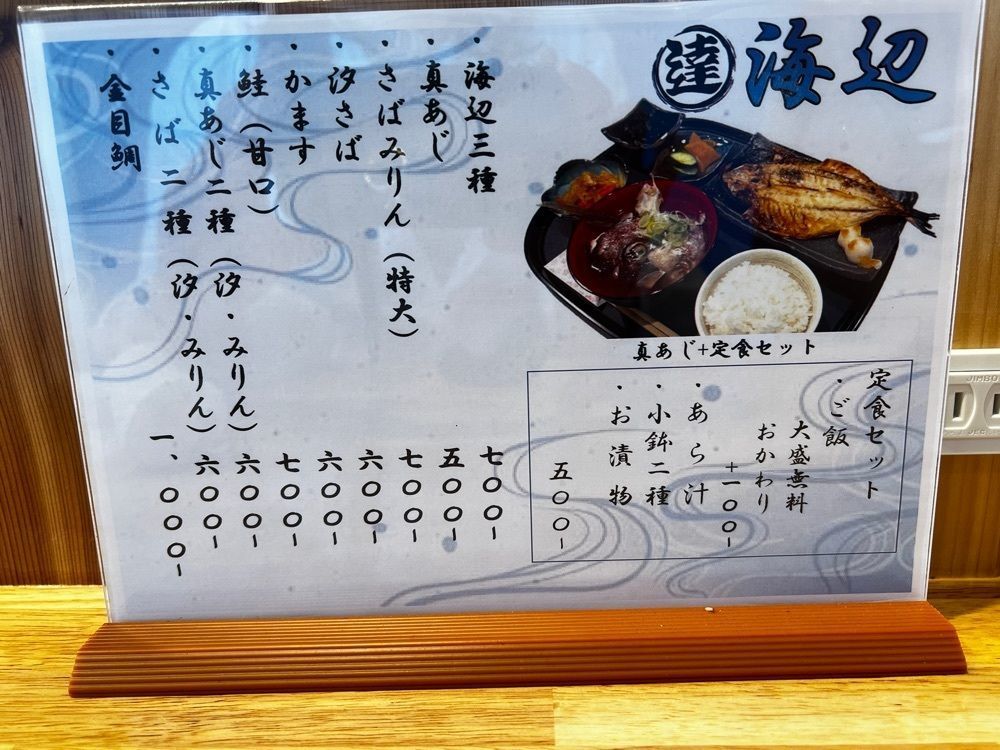 達 海辺
真あじ+定食セット
定食セット
・ご飯
大盛無料
おかわり
+一〇〇-
・あら汁
・小鉢二種
・お漬物
五〇〇-
・海辺三種 七〇〇-
・真あじ 五〇〇-
・さばみりん(特大) 七〇〇-
・汐さば 六〇〇-
・かます 六〇〇-
・鮭(甘口) 七〇〇-
・真あじ二種(汐・みりん) 六〇〇-
・さば二種(汐・みりん) 六〇〇-
・金目鯛 一、〇〇〇-